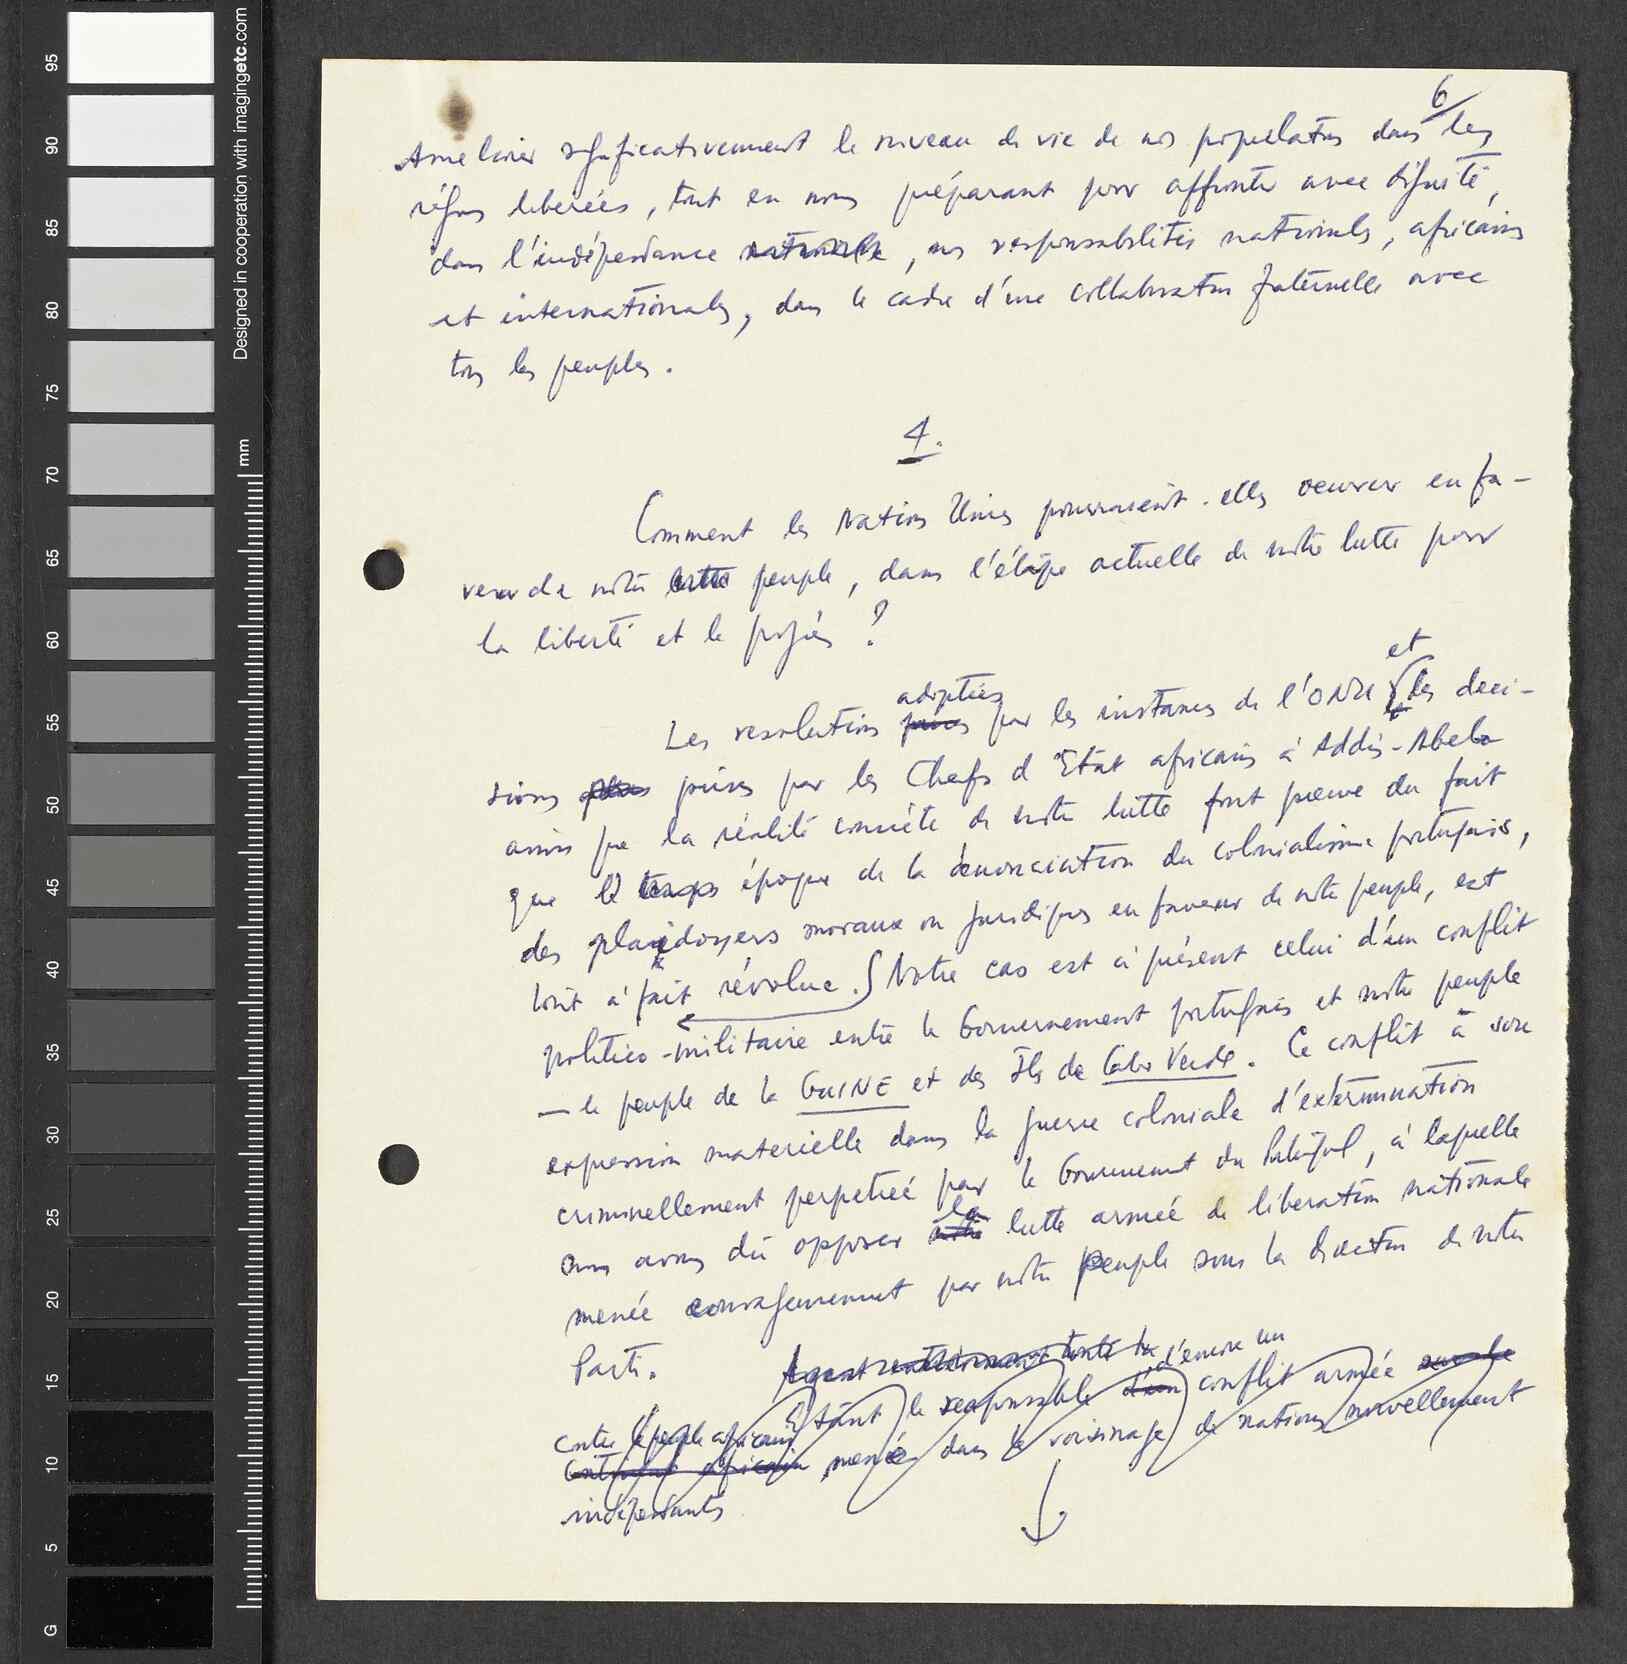 6
Ameliorer significativement le niveau de vie de nos populations dans les
régions liberées, tout en nous préparant pour affronter avec dignité,
dans l'indépendance nationale, nos responsabilités nationales, africaines
et internationales, dans le cadre d'une collaboration fraternelle avec
tous les peuples.
4.
Comment les Nations Unies pourraient-elles oeuvrer en fa-
veur de notre lutte peuple, dans l'étape actuelle de notre lutte pour
la liberté et le progrès ?
adoptées et
Les resolutions prises par les instances de l'ONU les deci-
sions prises par les Chefs d'Etat africains à Addis-Abeba
ainsi que la réalité concrète de notre lutte font preuve du fait
que le temps époque de la denonciation du colonialisme portugais,
des plaidoyers moraux ou juridiques en faveur de notre peuple, est
tout à fait révolue. Notre cas est à présent celui d'un conflit
politico-militaire entre le Gouvernement portugais et notre peuple
— le peuple de la GUINÉ et des Iles de Cabo Verde. Ce conflit a son
expression materielle dans la guerre coloniale d'extermination
criminellement perpetreé par le Gouvernement du Portugal, à laquelle
la
nous avons dû opposer notre lutte armée de liberation nationale
menée courageusement par notre peuple sous la direction de notre
Parti.
d'encore un
Etant le responsable d'un conflit armée
contre le peuple africain
Continent africain menée dans le voisinage de nations nouvellement
indépendants
95
90
85
80
75
70
65
60
55
50
45
40
35
30
25
20
15
10
5
G
mm
Designed in cooperation with imagingetc.com